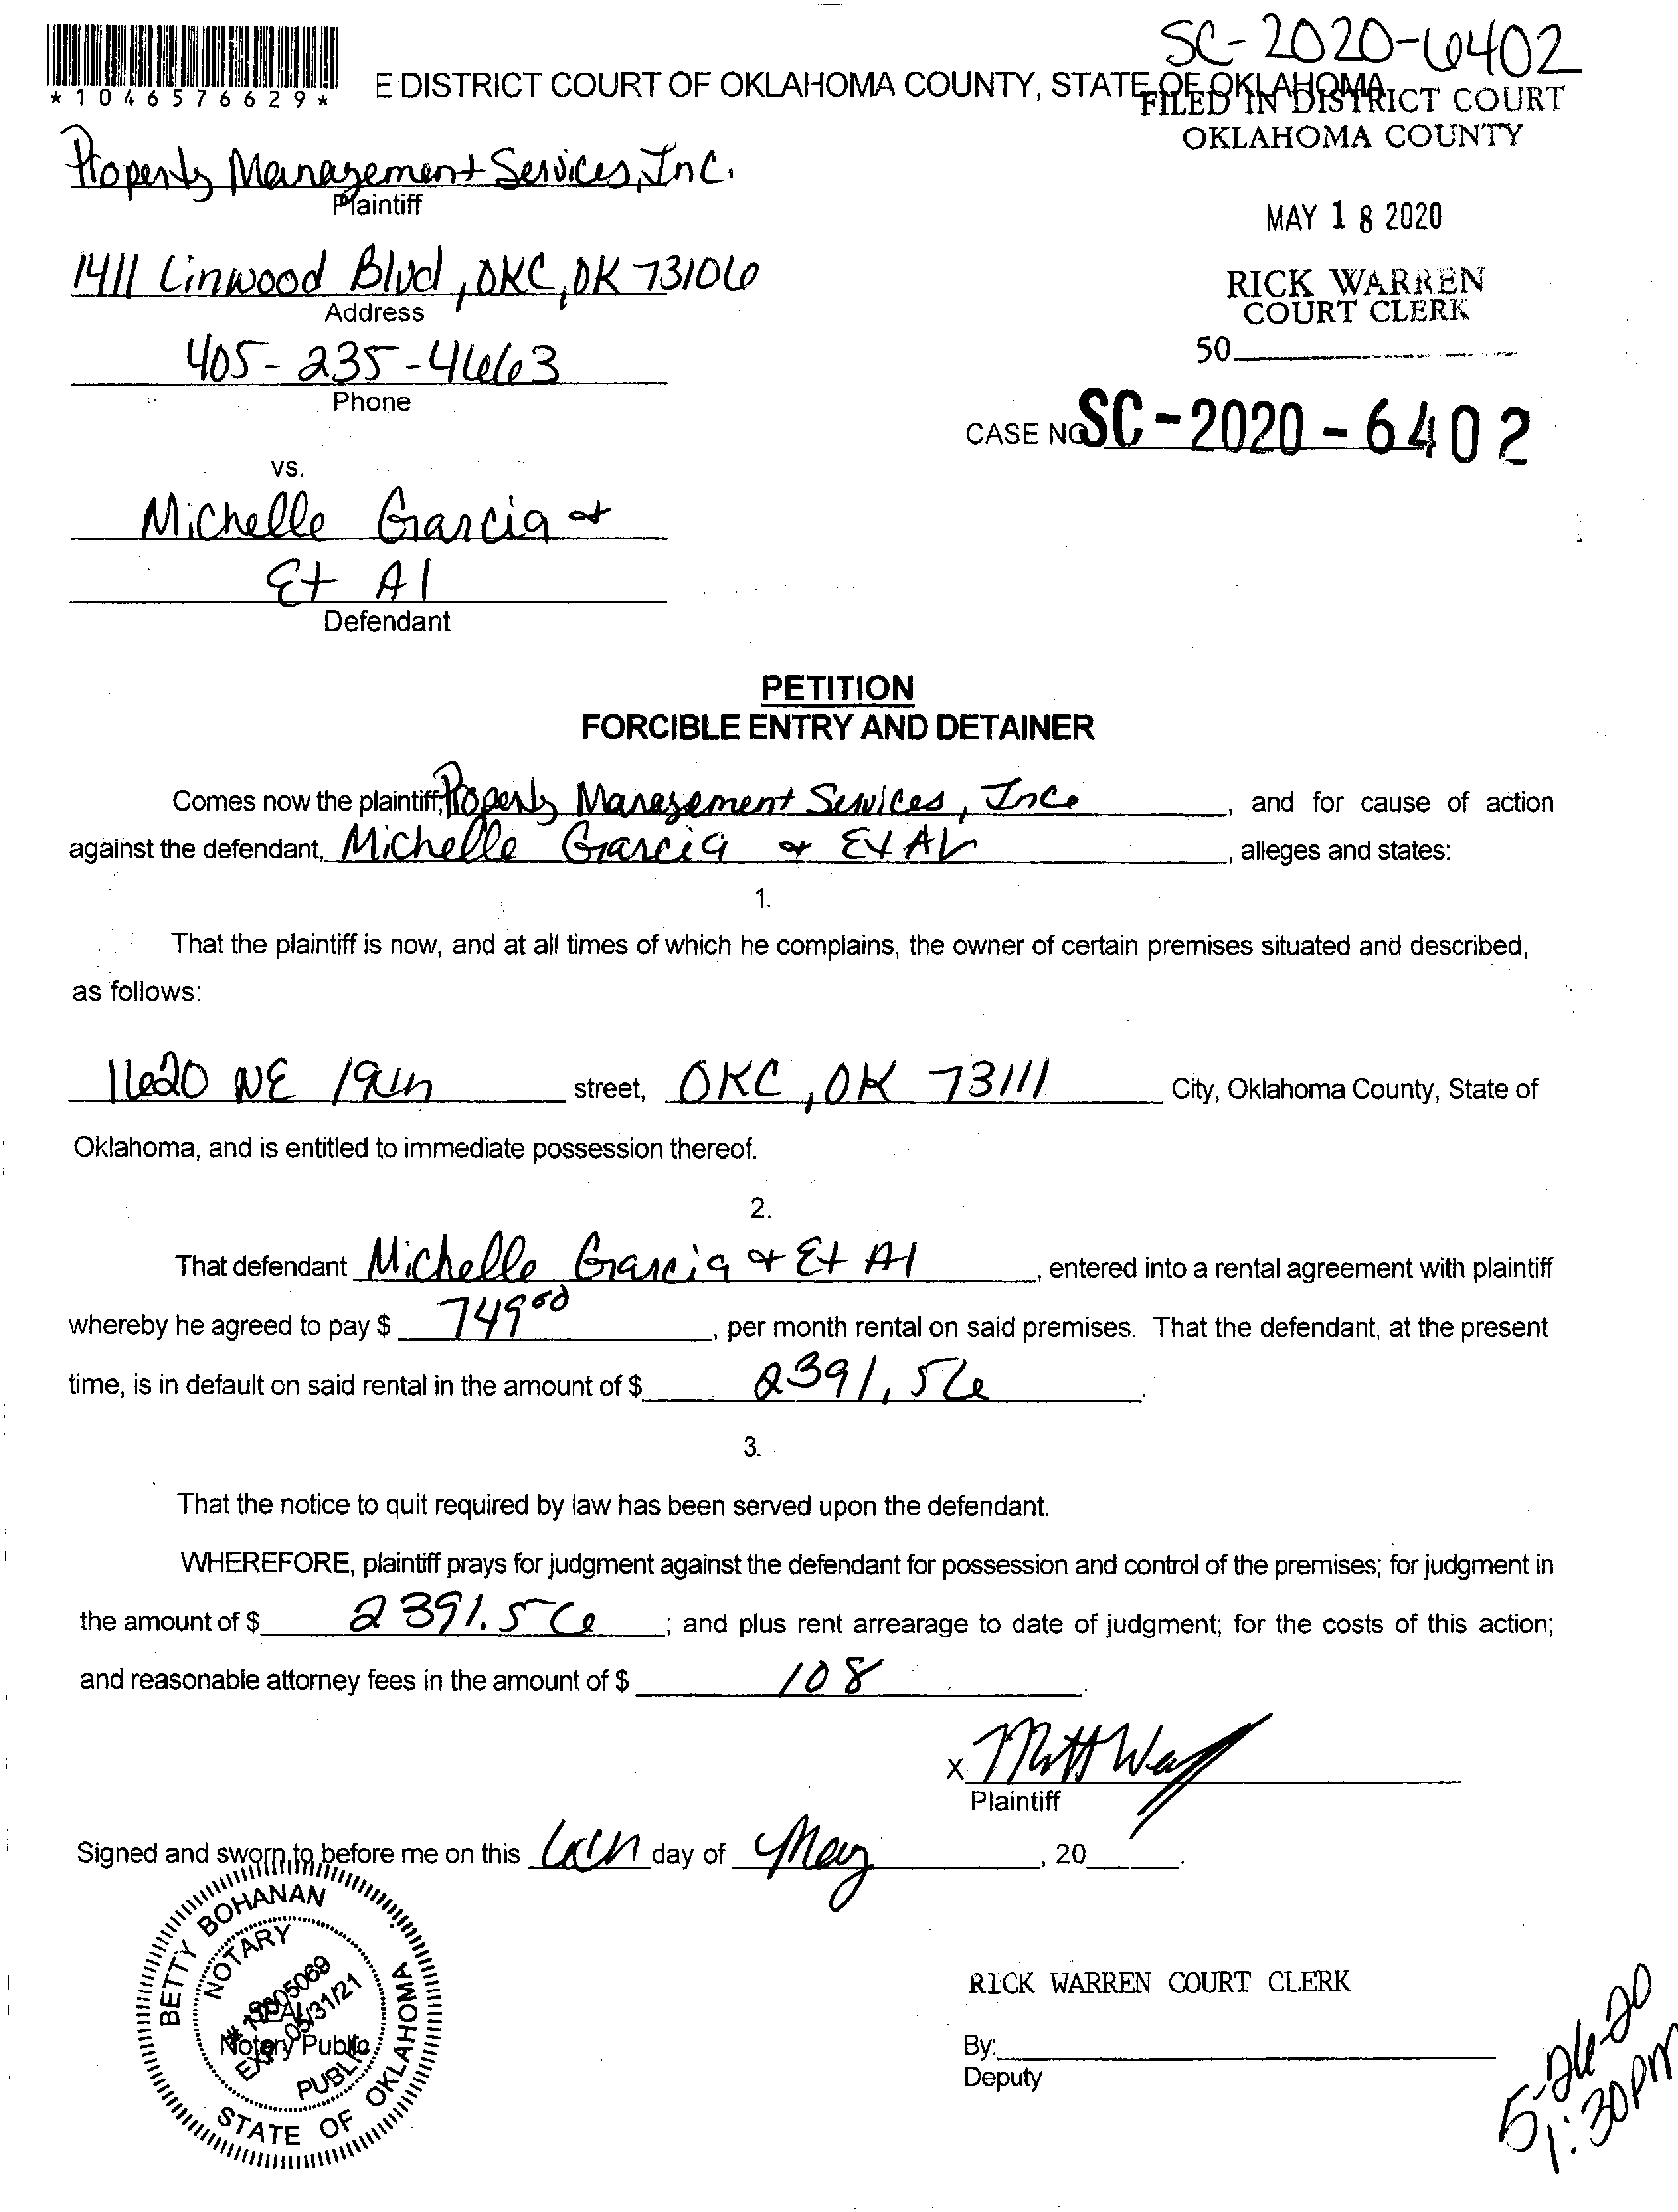 SC-2020-6402
*1046576629*
E DISTRICT COURT OF OKLAHOMA COUNTY, STATE OF OKLAHOMA
FILED IN DISTRICT COURT
OKLAHOMA COUNTY
Property Management Services, Inc.
Plaintiff
MAY 18 2020
1411 Linwood Blvd, OKC, OK 73106
Address
RICK WARREN
COURT CLERK
405-235-4663
50
Phone
CASE NO SC-2020-6402
vs.
Michelle Garcia &
Et Al
Defendant
PETITION
FORCIBLE ENTRY AND DETAINER
Comes now the plaintiff, Property Management Services, Inc. , and for cause of action
against the defendant, Michelle Garcia & Et Al , alleges and states:
1.
That the plaintiff is now, and at all times of which he complains, the owner of certain premises situated and described,
as follows:
1620 NE 19th street, OKC, OK 73111 City, Oklahoma County, State of
Oklahoma, and is entitled to immediate possession thereof.
2.
That defendant Michelle Garcia & Et Al , entered into a rental agreement with plaintiff
whereby he agreed to pay $ 749.00 , per month rental on said premises. That the defendant, at the present
time, is in default on said rental in the amount of $ 2391.56 .
3.
That the notice to quit required by law has been served upon the defendant.
WHEREFORE, plaintiff prays for judgment against the defendant for possession and control of the premises; for judgment in
the amount of $ 2391.56 ; and plus rent arrearage to date of judgment; for the costs of this action;
and reasonable attorney fees in the amount of $ 108 .
X
Plaintiff
Signed and sworn to before me on this day of May , 20 .
BETTY BOHANAN
NOTARY
EXP. 05/31/21
Notary Public
PUBLIC
STATE OF OKLAHOMA
RICK WARREN COURT CLERK
By:
Deputy
5-26-20
1:30pm